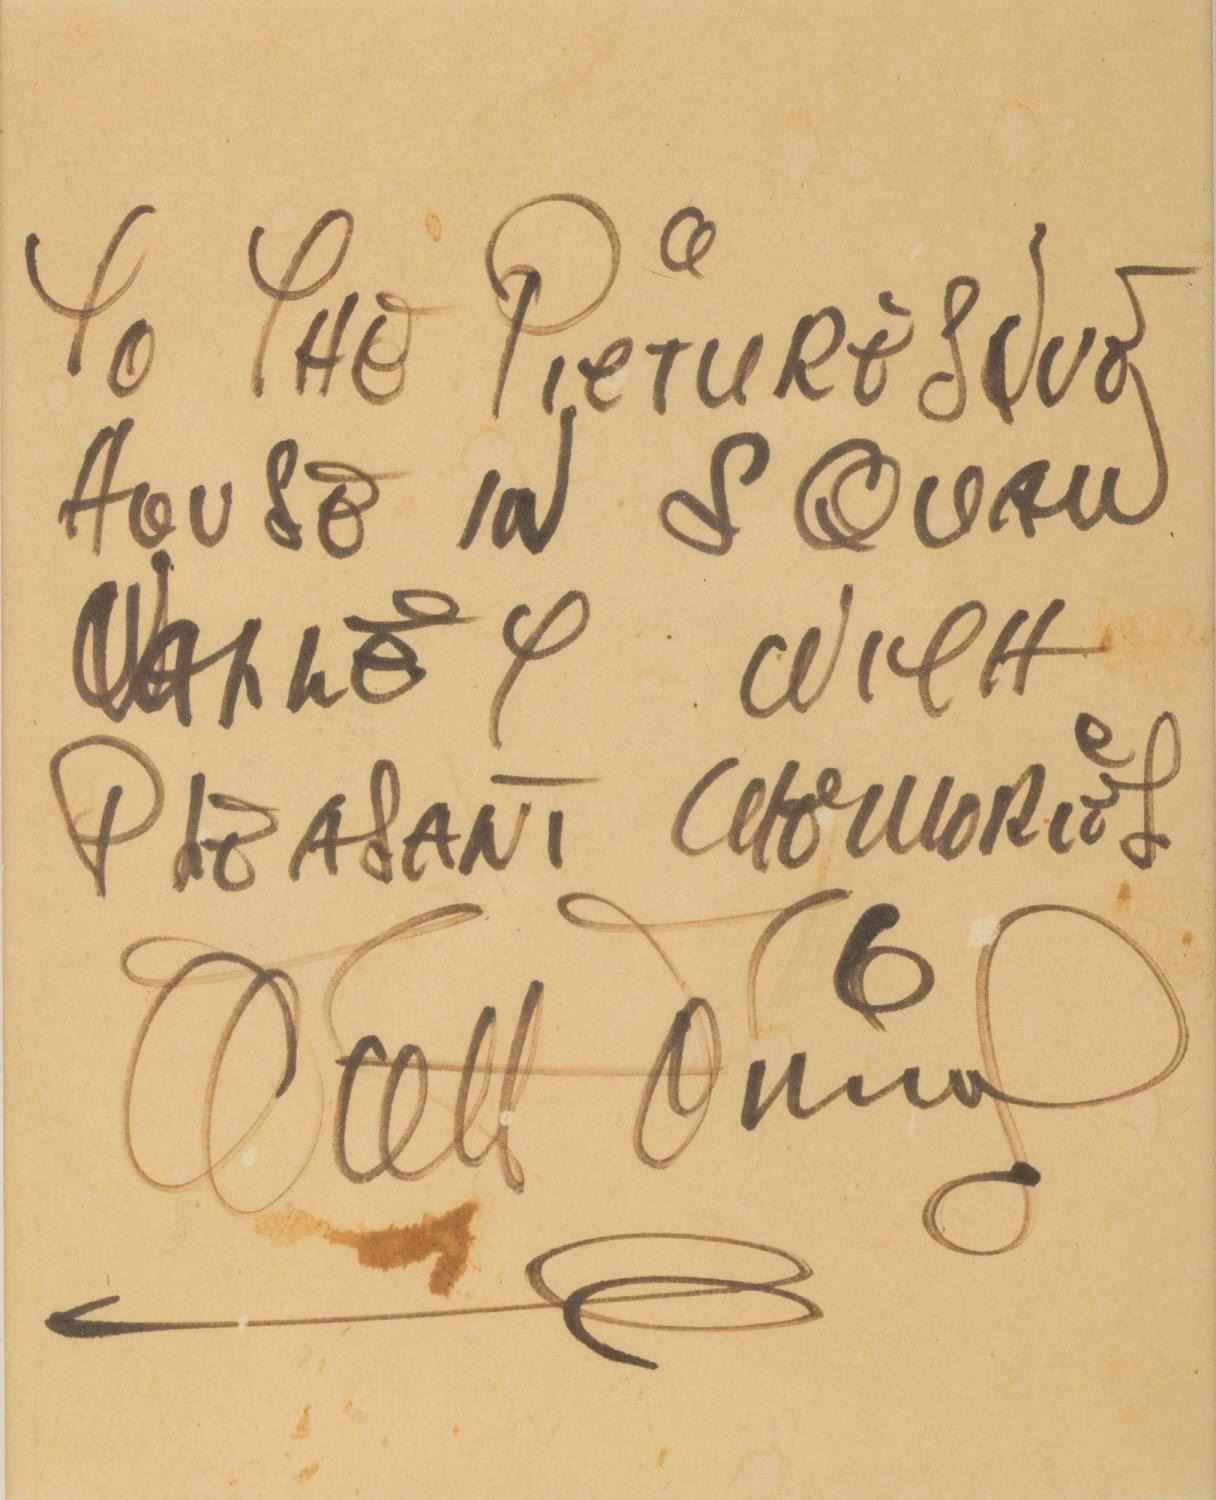 To The Picturesque
House in Squaw
Valley with
Pleasant Memories
Walt Disney